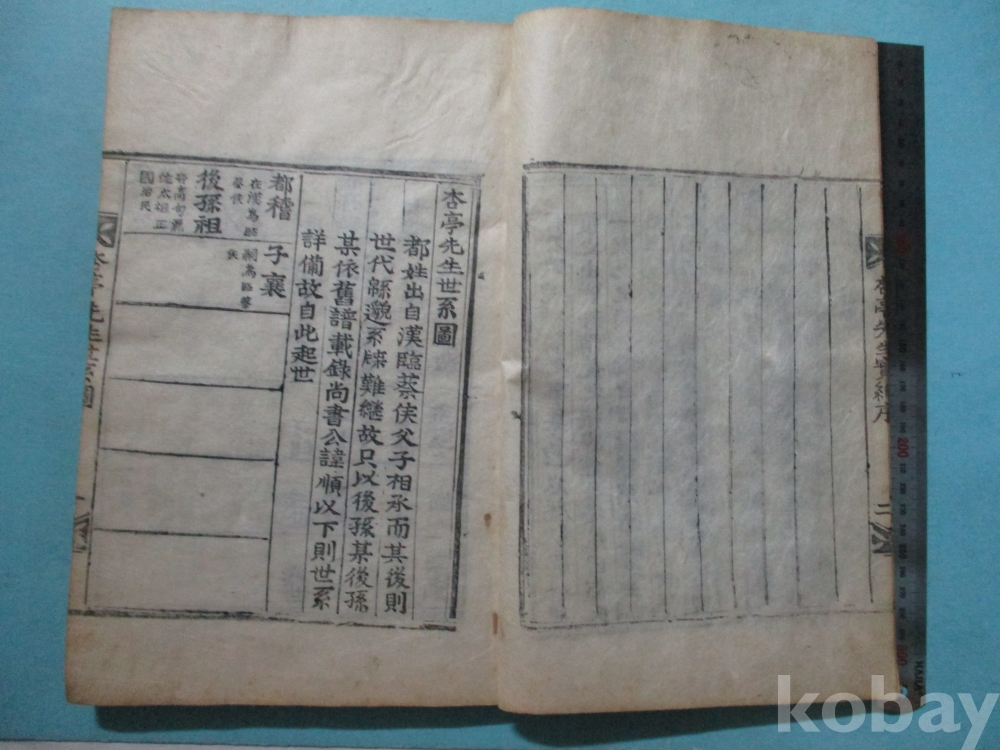 杏亭先生實紀序
二
杏亭先生世系圖
都姓出自漢臨蔡侯父子相承而其後則
世代綿邈系牒難繼故只以後孫某後孫
某依舊譜載錄尚書公諱順以下則世系
詳備故自此起世
都稽
在漢爲臨
蔡侯
子襄
嗣爲臨蔡
侯
後孫祖
國
杏亭先生世系圖
200
300
kobay